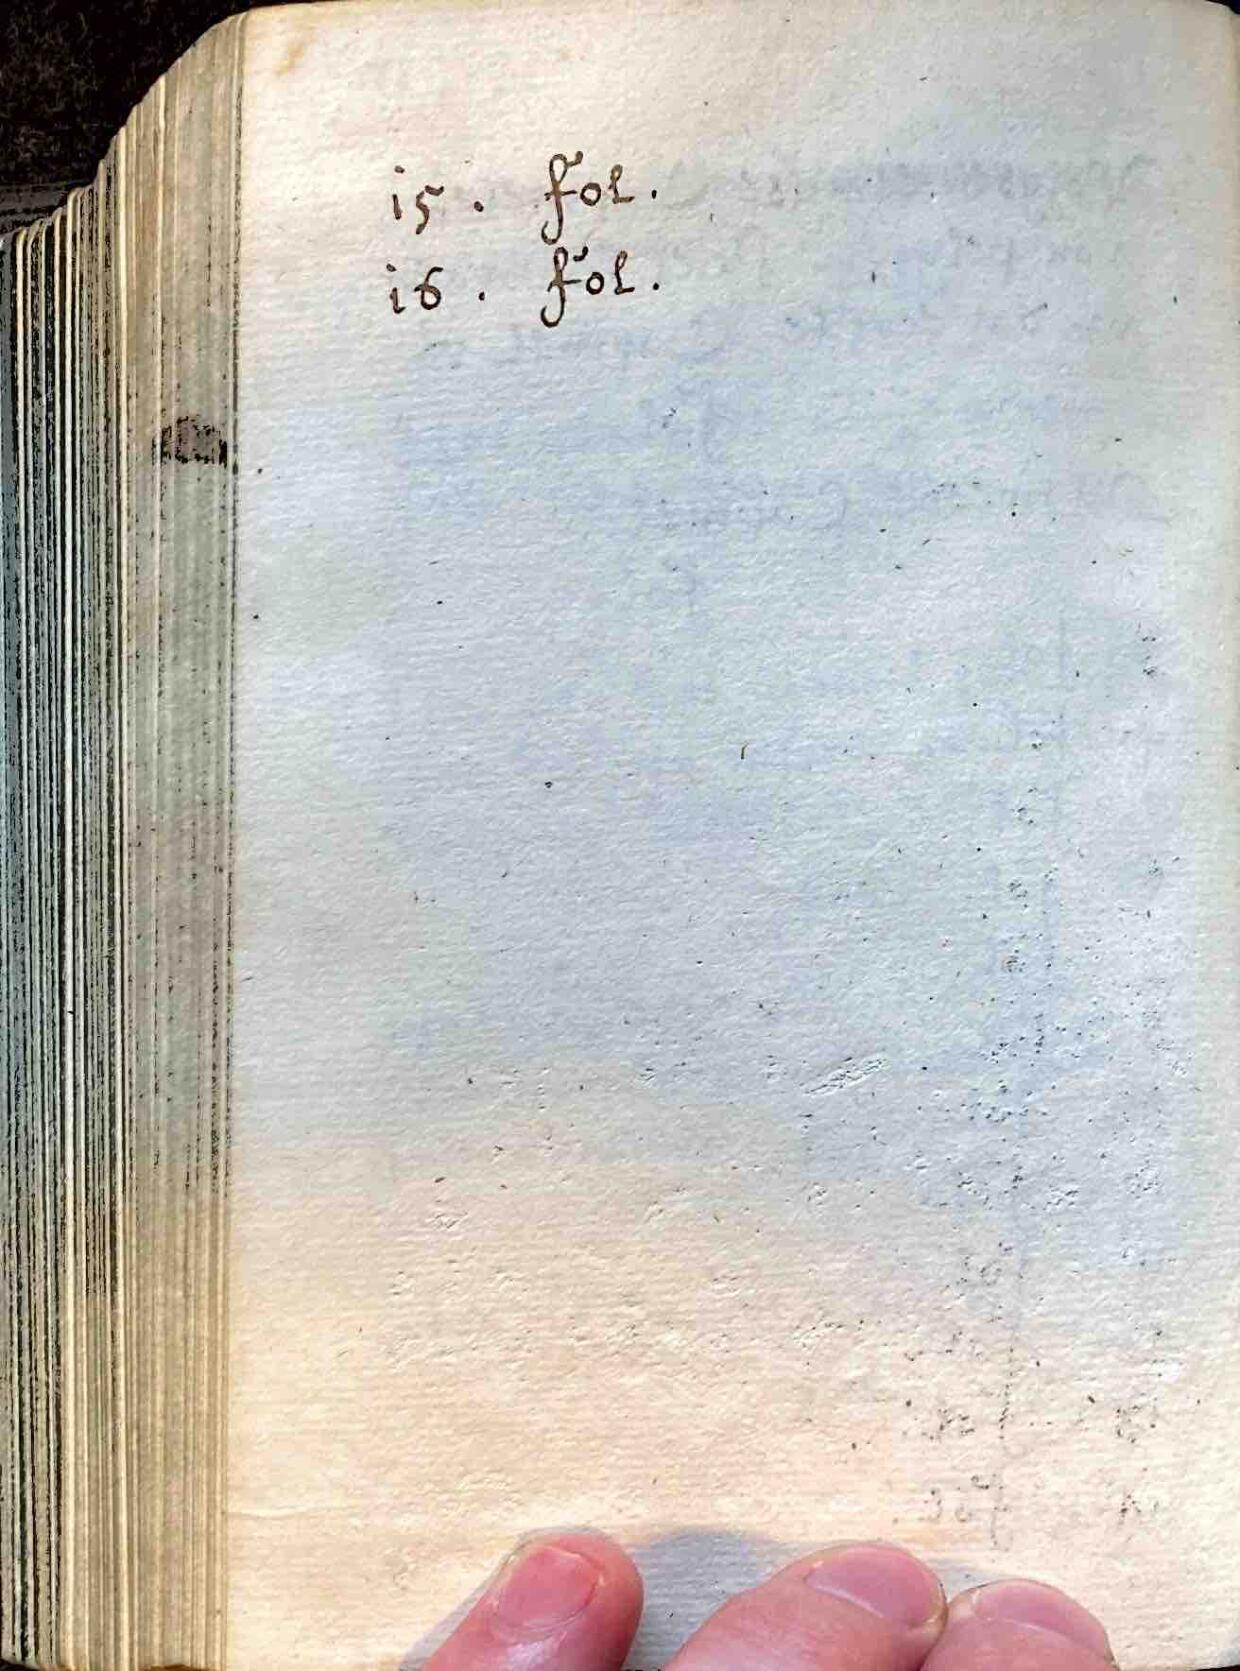 i5. fol.
i6. fol.